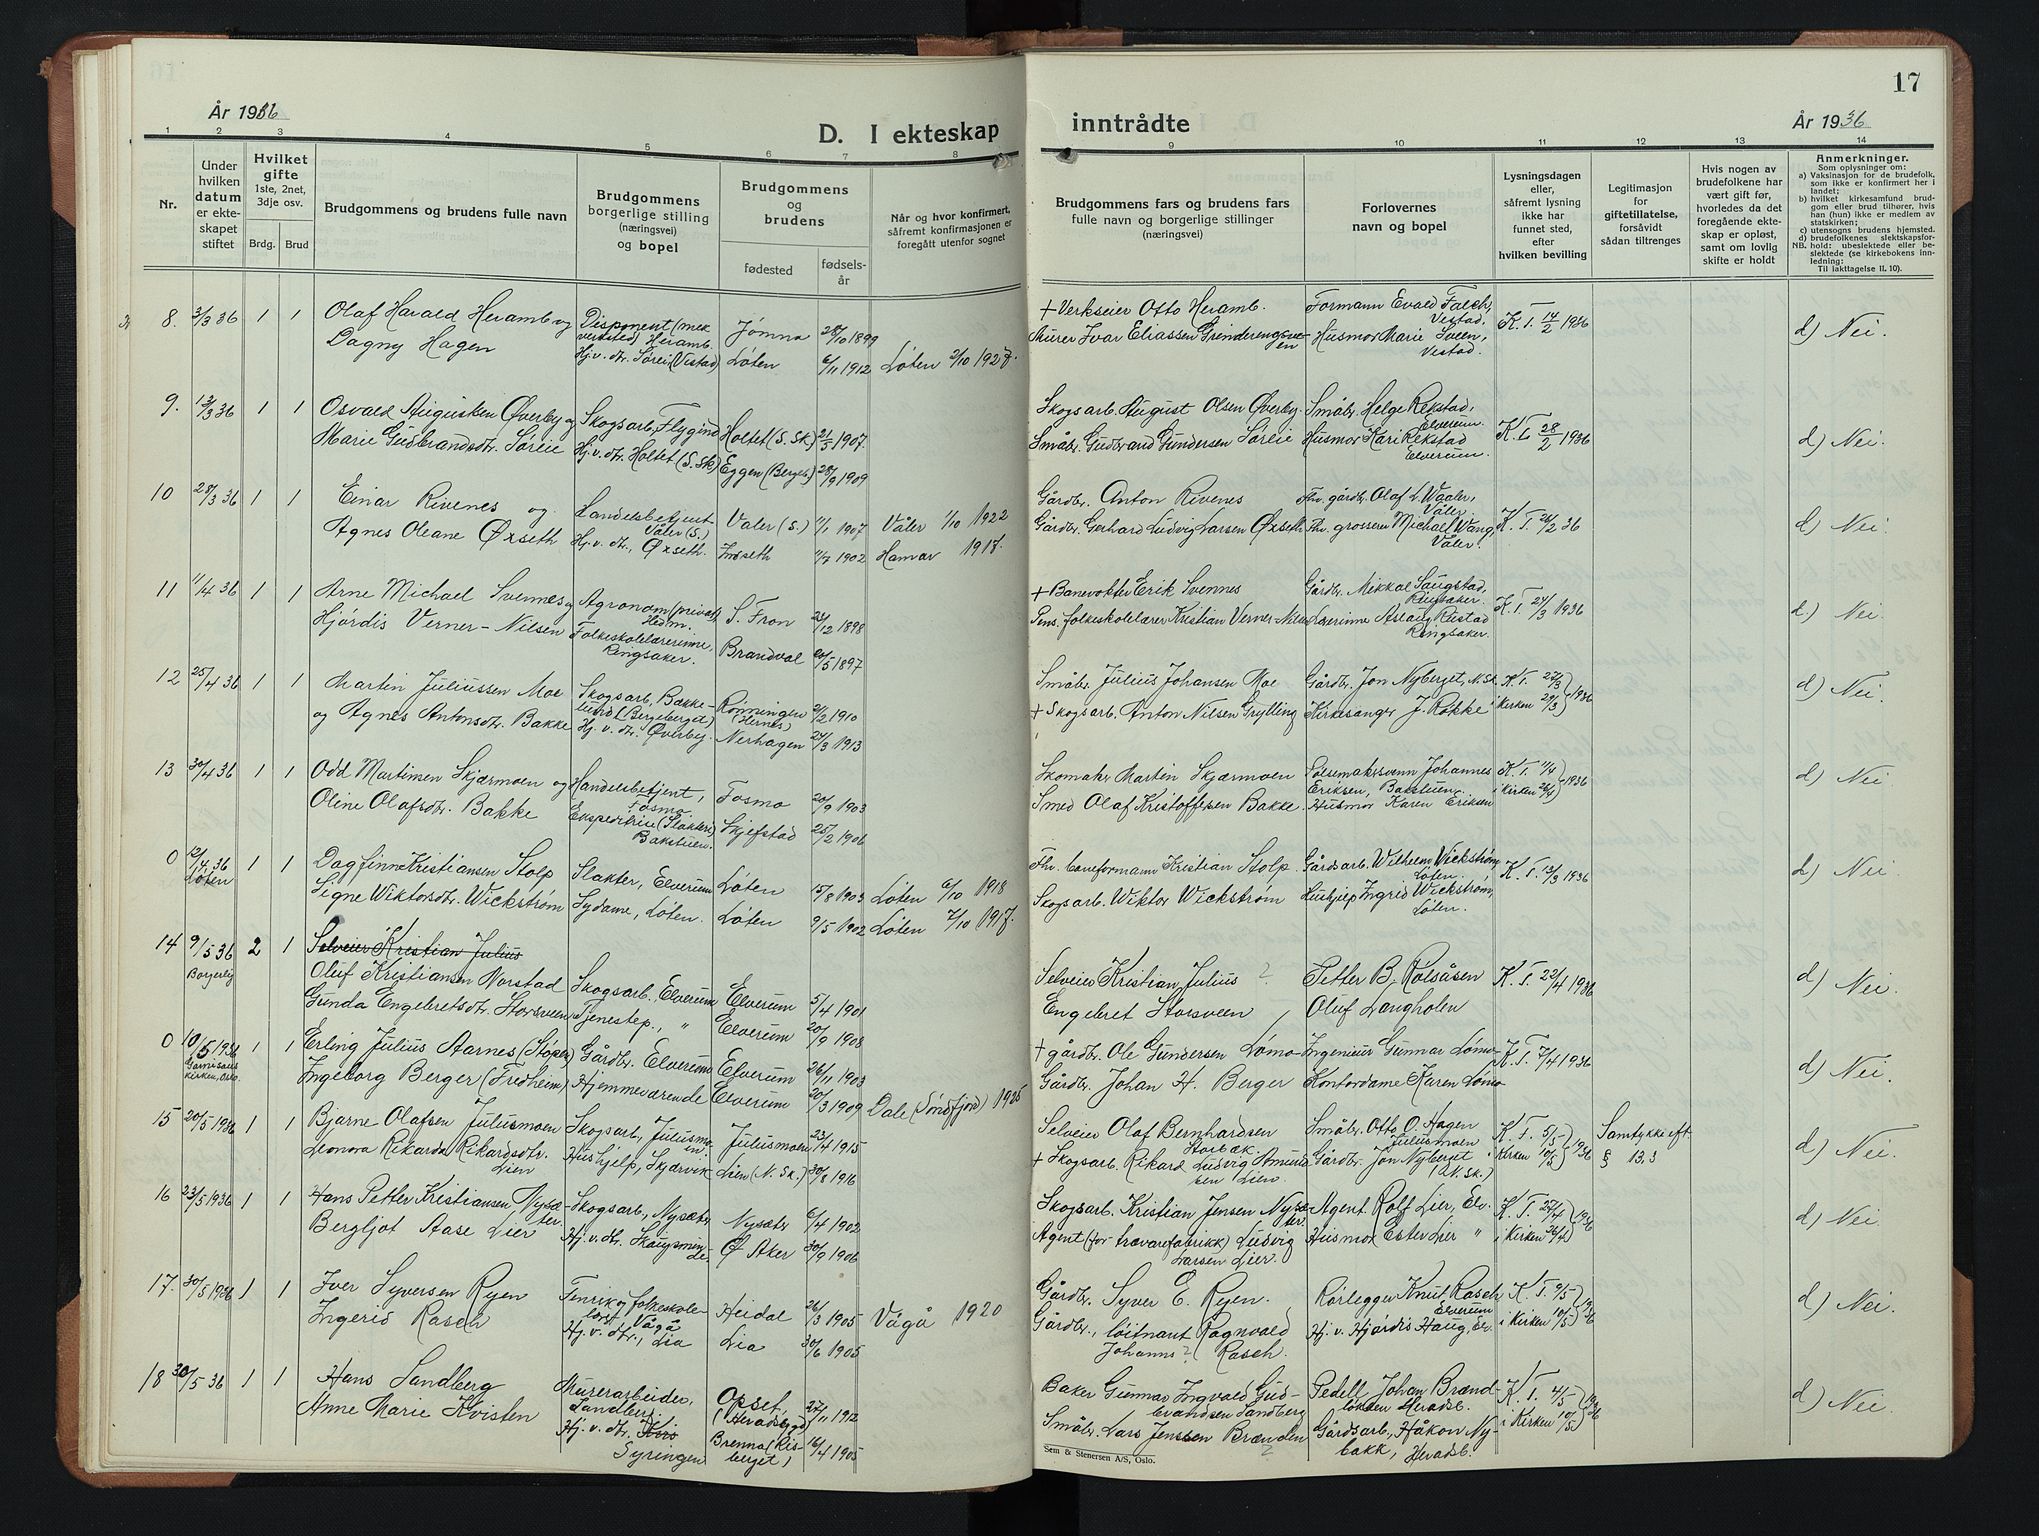 År 1936
D. I ekteskap
1 2 3 4 5 6 7 8
Nr.
Under hvilken datum er ekteskapet stiftet
Hvilket gifte 1ste, 2net, 3dje osv.
Brdg. Brud
Brudgommens og brudens fulle navn
Brudgommens borgerlige stilling (næringsvei) og bopel
Brudgommens og brudens
fødested
fødselsår
Når og hvor konfirmert, såfremt konfirmasjonen er foregått utenfor sognet
8. 2/3 36 1 1 Olaf Harald Heramb og Disponent (mek. verksted) Heramb. Jømna 28/10 1899
Dagny Hagen Hj.v. dtr. Søreie (Vestad) Løten 6/11 1912 Løten 2/10 1927.
9. 12/3 36 1 1 Osvald Augustsen Øverby og Skogsarb., Flygind Holtet (S. Sk) 21/5 1907.
Marie Gudbrandsdtr. Søreie Hj. v. dtr. Holtet (S. Sk) Eggen (Bergeb.) 28/9 1909
10 28/3 36 1 1 Einar Rivenes og Handelsbetjent Våler (S.) Våler (S.) 11/1 1907 Våler 1/10 1922
Agnes Oleane Øxseth Hj. v. dtr., Øxseth. Indset 11/7 1902 Hamar 1917.
11 11/4 36 1 1 Arne Michael Svennes og Agronom (privat) Hedm. S. Fron 24/12 1898
Hjørdis Verner-Nilsen Folkeskolelærerinne, Ringsaker. Brandval 20/5 1897
12 25/4 36 1 1 Martin Juliussen Moe Skogsarb. Bakkelund (Bergeberget) Rønningen (Hernes) 2/2 1910
og Agnes Antonsdtr. Bakke Hj. v. dtr. Øverby. Nerhagen 24/3 1913
13 30/4 36 1 1 Odd Martinsen Skjærmoen og Handelsbetjent, Fosmo Fosmo 20/9 1903
Oline Olafsdtr. Bakke Ekspeditrise (Slakteri) Bakstuen. Skjefstad 25/2 1906
0 12/4 36 Løten 1 1 Dagfinn Kristiansen Stolp Slakter, Elverum Løten 15/8 1903 Løten 6/10 1918
Signe Wiktorsdtr. Wickstrøm Sydame, Løten. Løten 9/5 1902 Løten 7/10 1917.
14 9/5 36 Borgerlig 2 1 Selveier Kristian Julius
Oluf Kristiansen Norstad Skogsarb. Elverum Elverum 5/4 1901
Gunda Engebretsdtr. Storsveen Tjenestep., " Elverum 20/9 1908
0 10/5 1936 Garnisonskirken, Oslo. 1 1 Erling Julius Aarnes (Støpen) Gårdbr. Elverum Elverum 26/11 1903
Ingeborg Berger (Fredheim) Hjemmeværende Elverum 20/3 1909 Dale (Sundfjord) 1925
15 20/5 1936 1 1 Bjarne Olafsen Julusmoen Skogsarb., Julusmoen. Julusmoen 23/4 1915
Leonora Rikarda Rikardsdtr. Lien Hushjelp, Skjærvik Lien (N. Sk.) 30/8 1916
16 23/5 1936 1 1 Hans Petter Kristiansen Nysæter. Skogsarb., Nysæter Nysæter 6/4 1902
Bergljot Aase Lier Hj. v. dtr. Skaugsminde. Ø Aker 30/9 1906
17. 30/5 1936 1 1 Iver Syversen Ryen Fenrik og folkeskolelærer Vågå Heidal 26/3 1905 Vågå 1920
Ingerid Rasch Hj. v. dtr., Lia Lia 30/6 1905
18 30/5 36 1 1 Hans Sandberg Murerarbeider, Sandberg Opset, (Heradsbygd) 27/11 1912
Anne Marie Kvisten Hj. v. dtr. Syringen Brenna (Risberget) 16/4 1905
17
inntrådte
År 1936
9 10 11 12 13 14
Brudgommens fars og brudens fars fulle navn og borgerlige stillinger (næringsvei)
Forlovernes navn og bopel
Lysningsdagen eller, såfremt lysning ikke har funnet sted, efter hvilken bevilling
Legitimasjon for giftetillatelse, forsåvidt sådan tiltrenges
Hvis nogen av brudefolkene har vært gift før, hvorledes da det foregående ekteskap er opløst, samt om lovlig skifte er holdt
Anmerkninger.
Som oplysninger om:
a) Vaksinasjon for de brudefolk, som ikke er konfirmert her i landet;
b) hvilket kirkesamfund brudgom eller brud tilhører, hvis han (hun) ikke er medlem av statskirken;
c) utensogns brudens hjemsted.
d) brudefolkenes slektskapsforhold: ubeslektede eller beslektede (se kirkebokens innledning:
NB. Til iakttagelse II. 10).
+ Verkseier Otto Heramb. Formann Evald Falch, Vestad, K. T. 14/2 1936 d) Nei.
Murer Ivar Eliassen Grinderengsveen Husmor Marie Sveen, Vestad.
Skogsarb. August Olsen Øverby. Småbr. Helge Rekstad, Elverum. K. T. 28/2 1936 d) Nei.
Småbr. Gudbrand Gundersen Søreie Husmor Kari Rekstad Elverum.
Gårdbr. Anton Rivenes Fhv. gårdbr. Olaf L. Waaler, Våler K. T. 26/2 36 d) Nei.
Gårdbr. Gerhard Ludvig Larsen Øxseth Fhv. grosserer Michael Wang, Våler.
+ Banevokter Erik Svennes Gårdbr. Mikkal Saugstad, Ringsaker. K. T. 24/3 1936 d) Nei.
Pens. folkeskolelærer Kristian Verner-Nilsen Lærerinne Aslaug Rustad Ringsaker.
Småbr. Julius Johansen Moe Gårdbr. Jon Nyberget, N. Sk. K. T. 27/3 1936 d) Nei.
+ Skogsarb. Anton Nilsen Grylling Kirkesanger J. Rokke i Kirken 29/3
Skomaker Martin Skjærmoen Pølsemakersvenn Johannes Eriksen, Bakstuen. K. T. 1/4 1936 d) Nei.
Smed Olaf Kristoffersen Bakke. Husmor Karen Eriksen i Kirken 26/4
Fhv. baneformann Kristian Stolp. Gårdsarb. Wilhelm Wickstrøm Løten. K. T. 13/3 1936 d) Nei.
Skogsarb. Wiktor Wickstrøm Hushjelp Ingrid Wickstrøm, Løten.
Selveier Kristian Julius ? Petter B. Kolsåsen K. T. 22/4 1936 d) Nei.
Engebret Storsveen Oluf Langholen
+ gårdbr. Ole Gundersen Lømo Ingeniør Gunnar Lømo K. T. 7/4 1936 d) Nei.
Gårdbr. Johan H. Berger Kontordame Karen Lømo
Selveier Olaf Bernhardsen Storbæk. Småbr. Otto O. Hagen Julusmoen K. T. 5/5 1936 Samtykke eft. § 13,3 d) Nei.
+ Skogsarb. Rikard Ludvig Amundsen Lien. Gårdbr. Jon Nyberget (N. Sk.) i Kirken 10/5
Skogsarb. Kristian Jensen Nysæter. Agent Rolf Lier, Elv. K. T. 27/4 1936 d) Nei.
Agent (for trævarefabrikk) Ludvig Larsen Lier. Husmor Ester Lier " i Kirken 26/4
Gårdbr. Syver E. Ryen. Rørlegger Knut Rasch Elverum K. T. 9/5 1936 d) Nei.
Gårdbr., løitnant Ragnvald Johanns? Rasch. Hj. v. Hjørdis Haug, Elv. i Kirken 10/5
Baker Gunnar Ingvald Gudbrandsen Sandberg Pedell Johan Brændlökken Heradsb. K. T. 4/5 1936 d) Nei.
Småbr. Lars Jensen Brænden ? Gårdsarb. Håkon Nybakk, Heradsb. i Kirken 10/5
Sem & Stenersen A/S, Oslo.